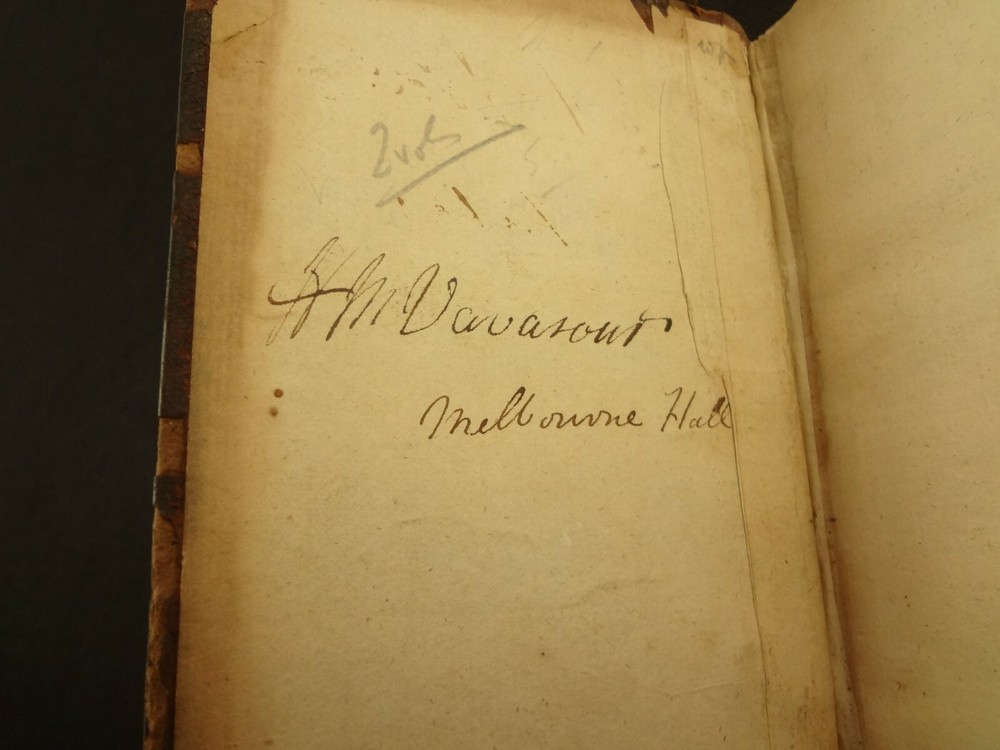 2 vols
H M Vavasour
Melbourne Hall